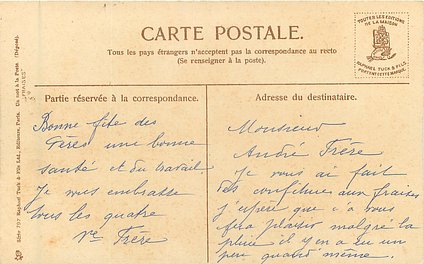 CARTE POSTALE.
Tous les pays étrangers n'acceptent pas la correspondance au recto
(Se renseigner à la poste).
TOUTES LES EDITIONS
DE LA MAISON
RAPHAEL TUCK & FILS
PORTENT CETTE MARQUE.
Partie réservée à la correspondance.
Bonne fête des
Pères une bonne
santé et du travail
Je vous embrasse
tous les quatre
Vve Frère
Adresse du destinataire.
Monsieur
André Frère
Je vous ai fait
des confitures aux fraises
j'espère que ça vous
fera plaisir malgré la
pluie il y en a eu un
peu quand même.
Série 757 Raphael Tuck & Fils Ltd., Editeurs, Paris.
(Déposé).